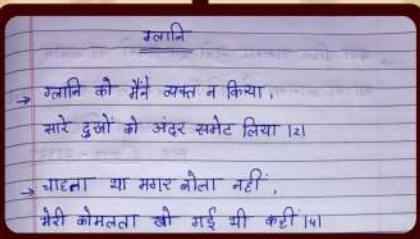 ग्लानि
→ ग्लानि को मैंने व्यक्त न किया,
सारे दुखों को अंदर समेट लिया ।2।
→ चाहता था मगर बोला नहीं,
मेरी कोमलता खो गई थी कहीं ।4।